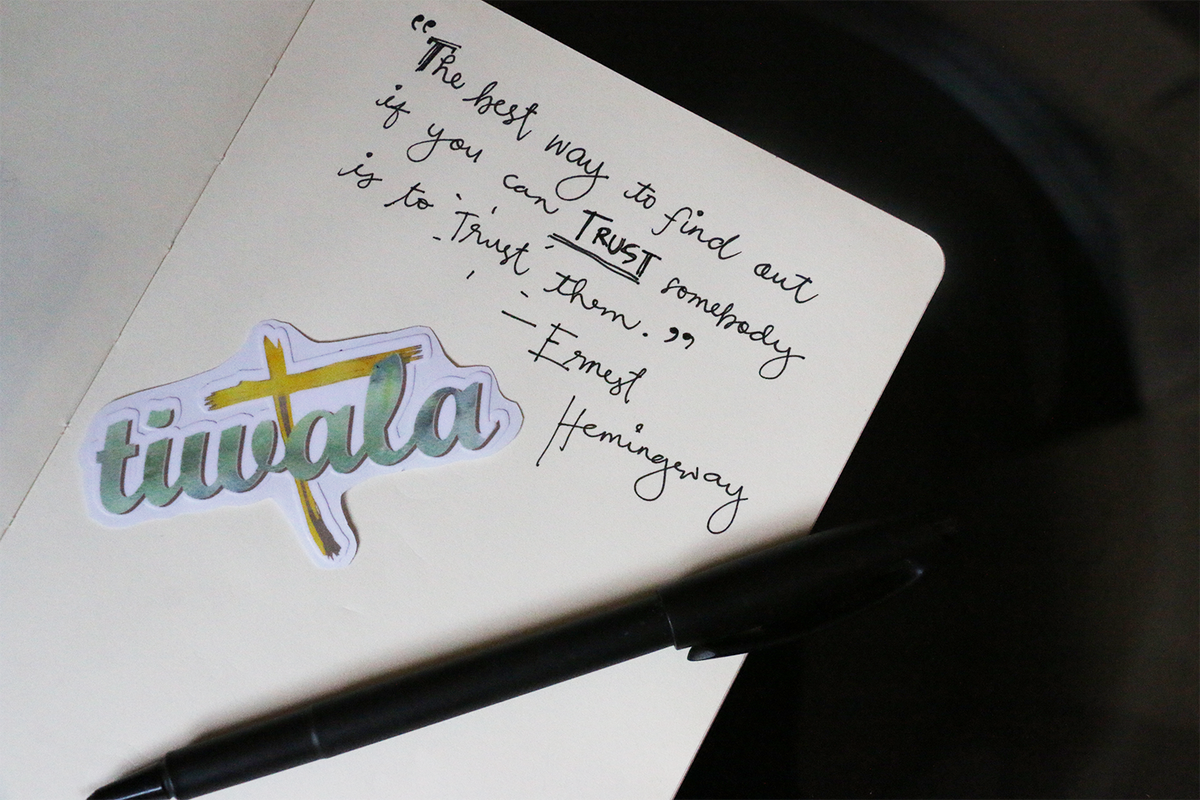 "The best way to find out
if you can TRUST somebody
is to Trust them."
- Ernest
Hemingway
tiwala